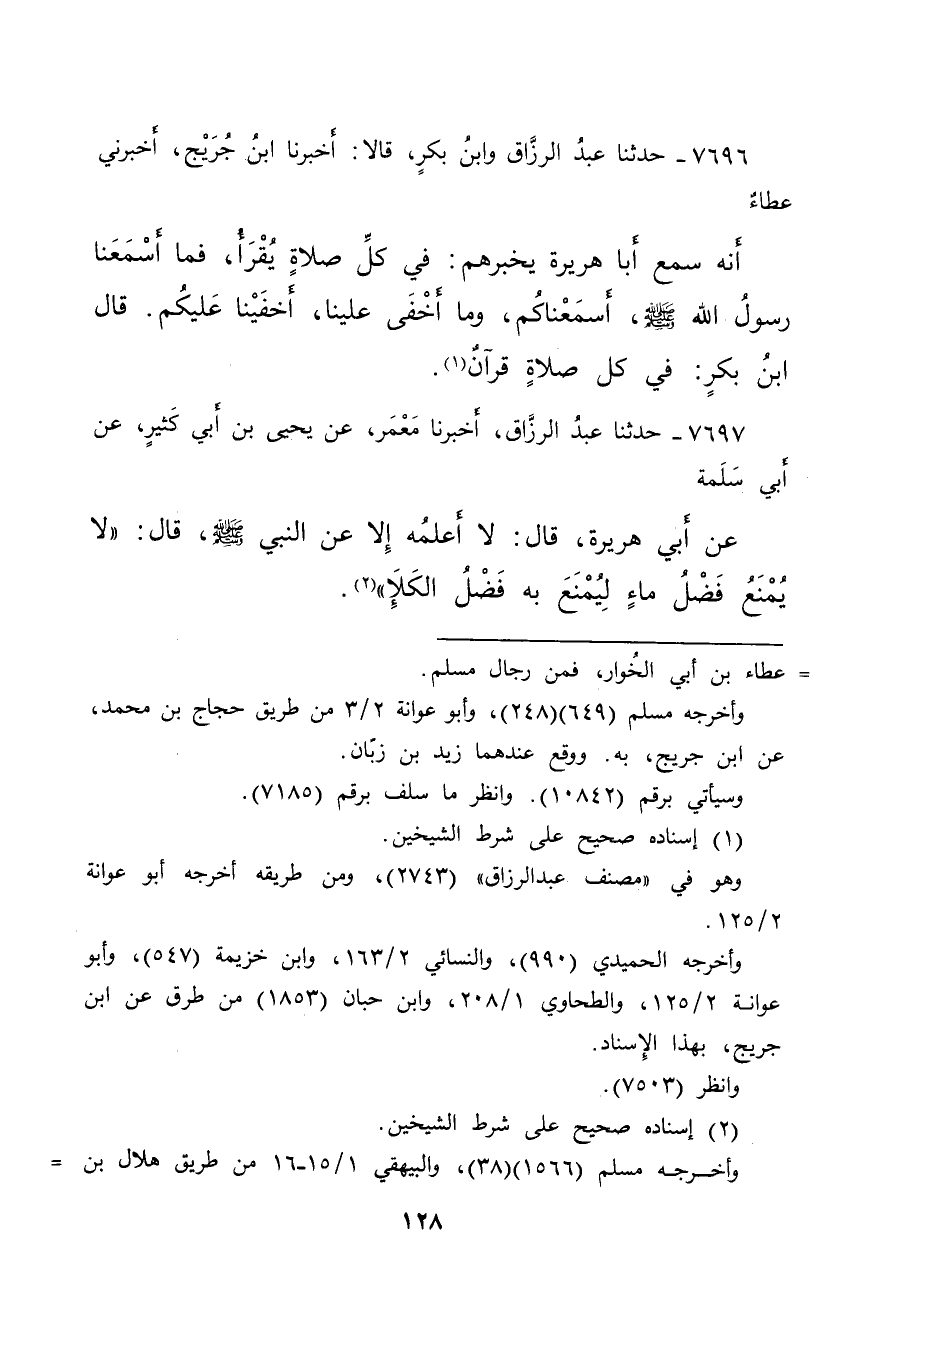 ٧٦٩٦ـ حدثنا عبدُ الرزَّاق وابنُ بكرٍ، قالا: أَخبرنا ابنُ جُرَيْج، أَخبرني
عطاءٌ
أَنه سمع أَبا هريرة يخبرهم: في كلِّ صلاةٍ يُقْرَأُ، فما أَسْمَعَنا
رسولُ الله ﷺ، أَسمَعْناكُم، وما أَخْفَى علينا، أَخفَيْنا عَليكُم. قال
ابنُ بكرٍ: في كل صلاةٍ قرآنٌ(١).
٧٦٩٧ـ حدثنا عبدُ الرزَّاق، أَخبرنا مَعْمَر، عن يحيى بن أَبي كَثيرٍ، عن
أَبي سَلَمة
عن أَبي هريرة، قال: لا أَعلمُه إِلا عن النبي ﷺ، قال: «لا
يُمْنَعُ فَضْلُ ماءٍ لِيُمْنَعَ به فَضْلُ الكَلَإِ»(٢).
= عطاء بن أبي الخُوار، فمن رجال مسلم.
وأخرجه مسلم (٦٤٩)(٢٤٨)، وأبو عوانة ٣/٢ من طريق حجاج بن محمد،
عن ابن جريج، به. ووقع عندهما زيد بن زبّان.
وسيأتي برقم (١٠٨٤٢). وانظر ما سلف برقم (٧١٨٥).
(١) إسناده صحيح على شرط الشيخين.
وهو في «مصنف عبدالرزاق» (٢٧٤٣)، ومن طريقه أخرجه أبو عوانة
١٢٥/٢.
وأخرجه الحميدي (٩٩٠)، والنسائي ١٦٣/٢، وابن خزيمة (٥٤٧)، وأبو
عوانة ١٢٥/٢، والطحاوي ٢٠٨/١، وابن حبان (١٨٥٣) من طرق عن ابن
جريج، بهذا الإسناد.
وانظر (٧٥٠٣).
(٢) إسناده صحيح على شرط الشيخين.
وأخـرجـه مسلم (١٥٦٦)(٣٨)، والبيهقي ١٥/١ـ١٦ من طريق هلال بن =
١٢٨